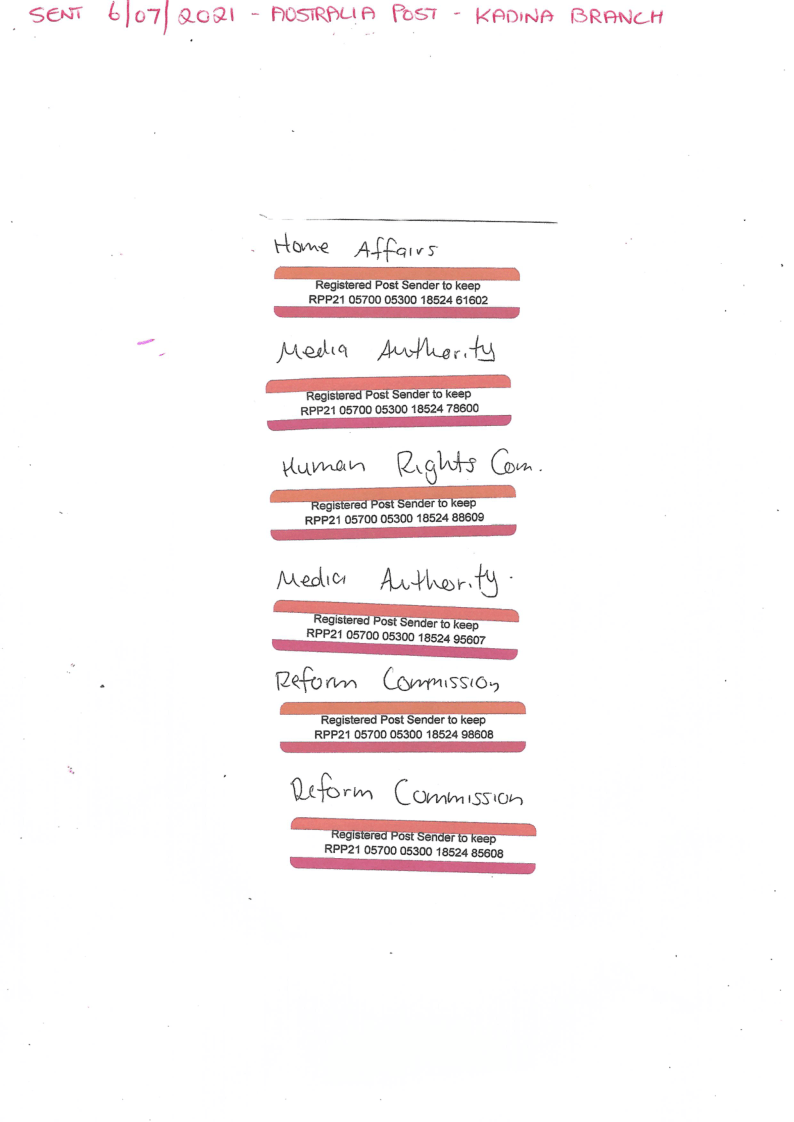 SENT 6/07/2021 - AUSTRALIA POST - KADINA BRANCH
Home Affairs
Registered Post Sender to keep
RPP21 05700 05300 18524 61602
Media Authority
Registered Post Sender to keep
RPP21 05700 05300 18524 78600
Human Rights Com.
Registered Post Sender to keep
RPP21 05700 05300 18524 88609
Media Authority.
Registered Post Sender to keep
RPP21 05700 05300 18524 95607
Reform Commission
Registered Post Sender to keep
RPP21 05700 05300 18524 98608
Reform Commission
Registered Post Sender to keep
RPP21 05700 05300 18524 85608